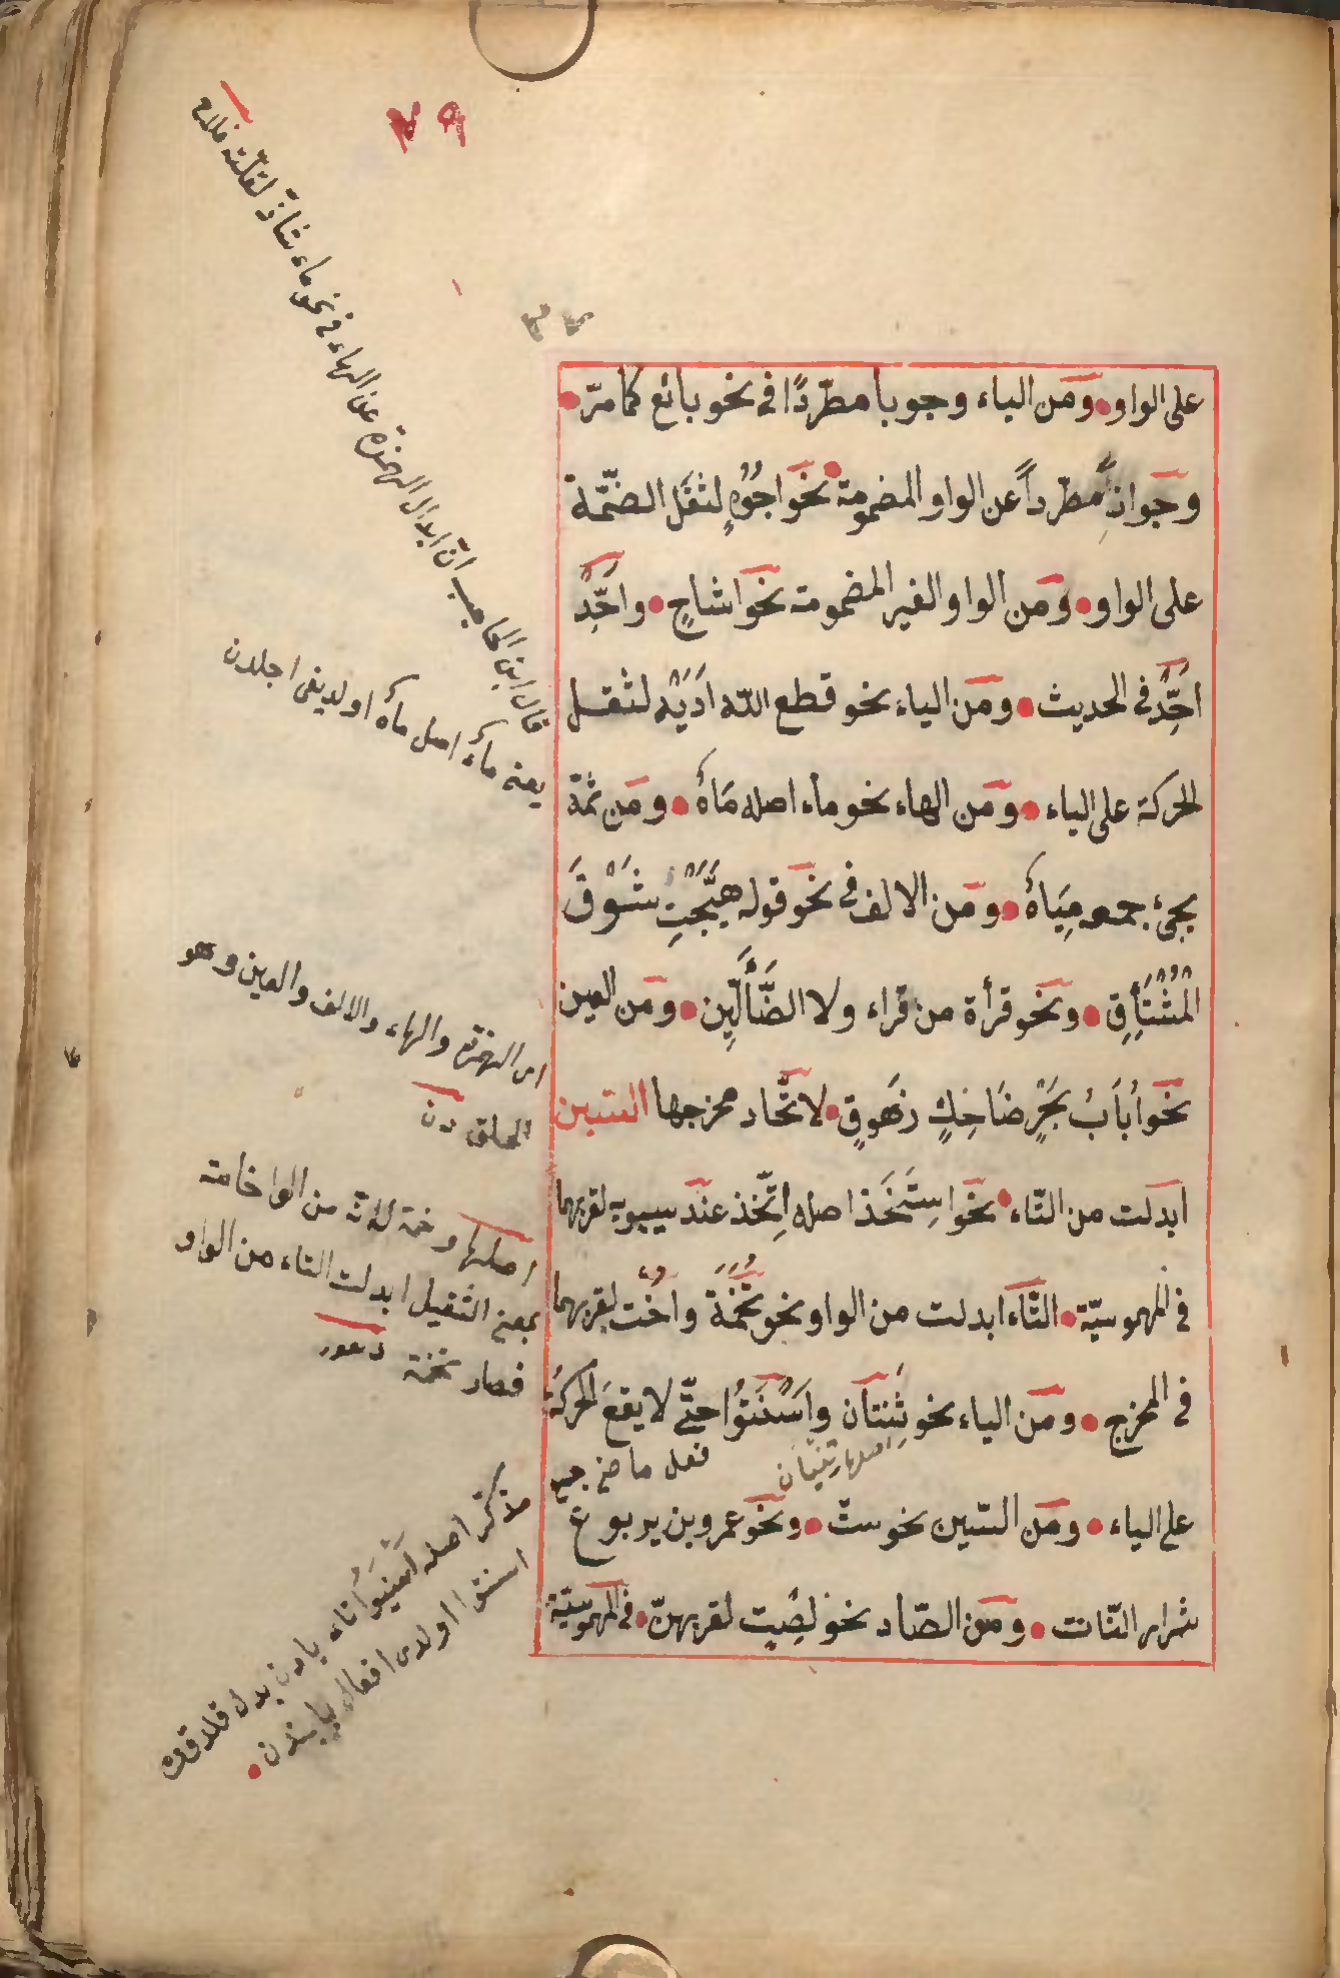 ٧٩
على الواو ومن الياء وجوبا مطّردًا في نحو بائع كما مرّ
وجوازاً مطّرداً عن الواو المضمومة نحو اجُوُهٍ لثقل الضّمّة
على الواو ومن الواو الغير المضمومة نحو اشاحٍ واَحِّدْ
اَحِّدْ في الحديث ومن الياء نحو قطع الله اَدَيْهِ لثقل
الحركة على الياء ومن الهاء نحو ماء اصله مَاهٌ ومن ثمة
يجئ جمعه مِيَاهٌ ومن الالف في نحو قوله هَيَّجْتِ شَوْقَ
الْمُشْتَأِقِ ونحو قرأة من قراء ولا الضَّأَلِّين ومن العين
نحو اُبَابُ بَحْرٍ ضَاحِكٍ زَهَوقٍ لاتّحاد مخرجها السين
ابدلت من التّاء نحو اسِتَخَذ اصله اِتَّخذ عند سيبويه لقربهما
في المهموسيّة التّاء ابدلت من الواو نحو تُخَمَةٌ واُخْت لقربهما
في المخرج ومن الياء نحو ثِنتَان واَسْنَتُوا حتّى لا يقع الحركة
اصلها ثنيان
فعل ماض جمع
على الياء ومن السّين نحو ستّ ونحو عمرو بن يربوع
شرار النّات ومن الصّاد نحو لصِيت لقربهنّ في المهموسيّة
قال ابن الحاجب انّ ابدال الهمزة عن الهاء في نحو ماء شاذّ لقلّته
يعنى ماءٌ اصل ماهٌ اولديغى اجلدن
اى الهمزة والهاء والالف والعين وهو
الحلق دن
اصلها وخمة لانّه من الواخامة
بمعنى الثقيل ابدلت التاء من الواو
فصار تخمة
مذكّر اصله اَسْنَيوُا تاء يادن بدل قلدقده
اسنتوا اولدى افعال بابندن